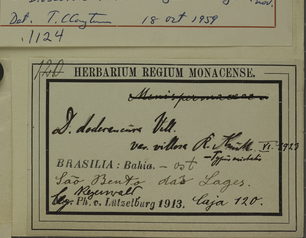 Det. T. Croytum 18 oct 1959
1124
120
HERBARIUM REGIUM MONACENSE.
Menispermaceae
D. dodecandra Vell.
var. villosa R. Knuth VI. 1923
BRASILIA: Bahia. — ost
São Bento das Lages.
Regenwalt
leg. Ph. v. Lützelburg 1913. Caja 120.